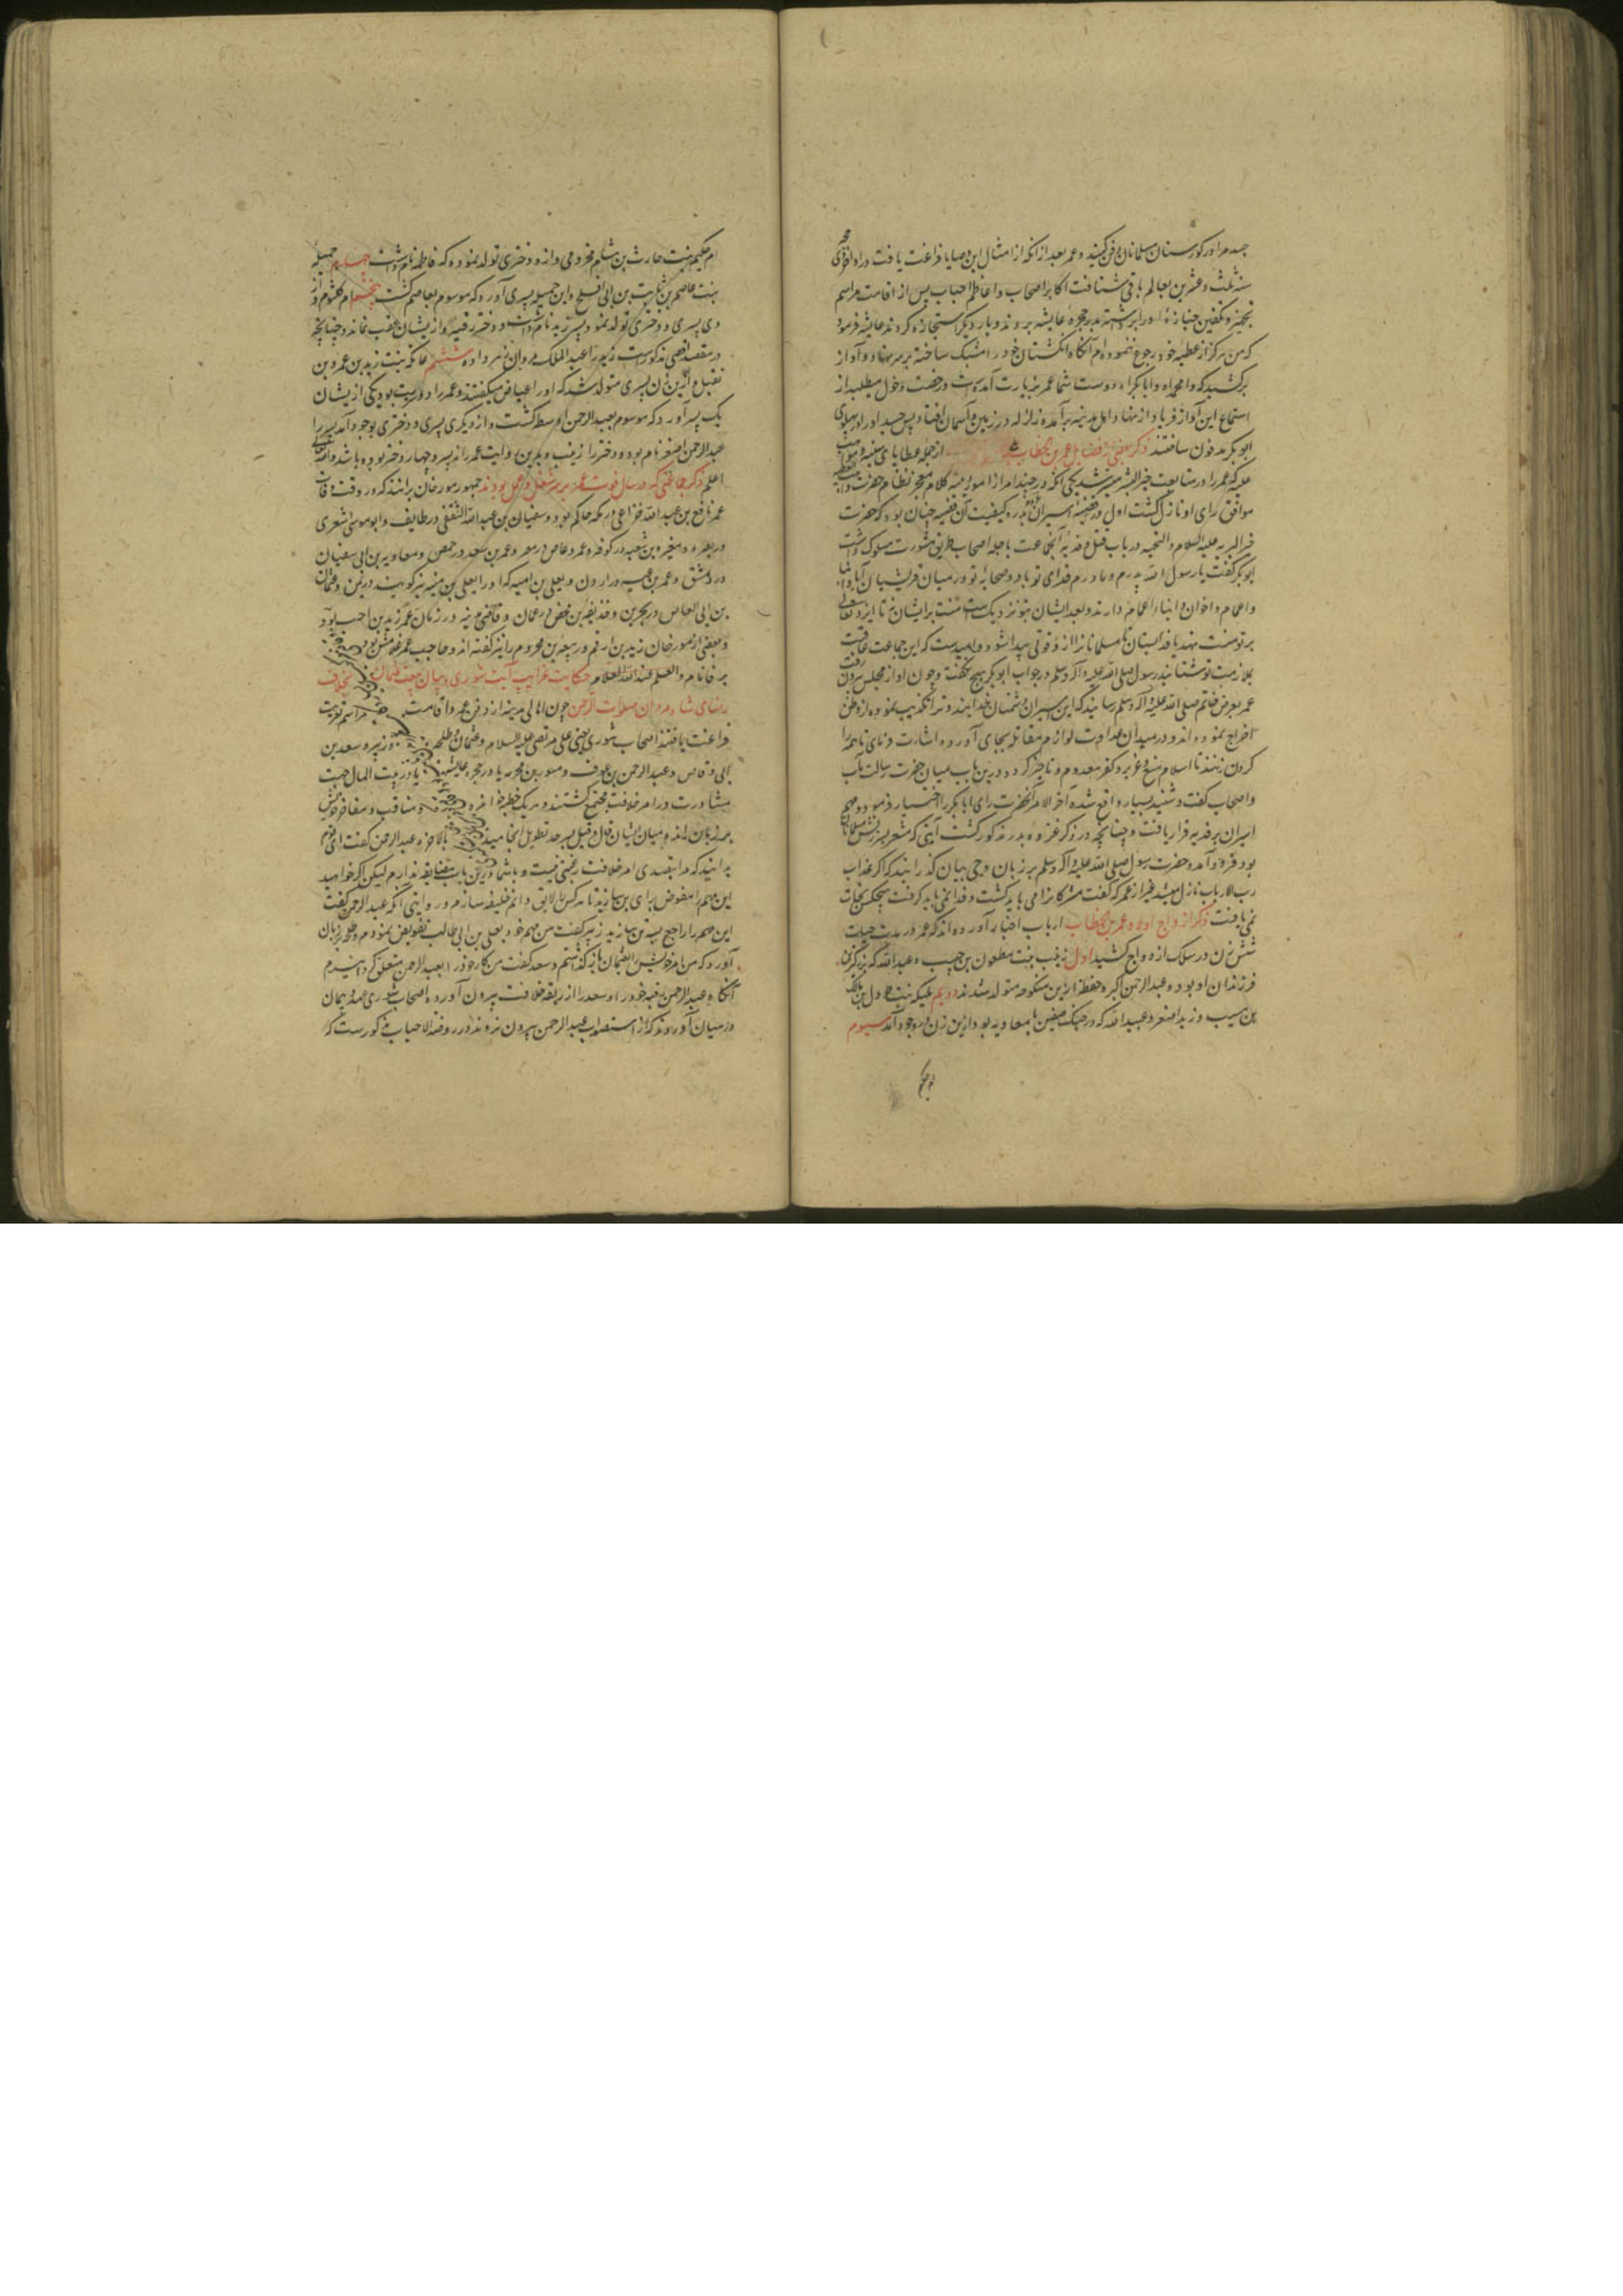 جسد مرا در کورستان مسلمانان دفن کنید و عمر بعد از آنکه از امثال این وصایا فراغت یافت در اواخر
سنه ثلث و عشرین بعالم باقی شتافت اکابر اصحاب و اعاظم احباب پس از اقامت مراسم
تجهیز و تکفین جنازه او را برداشته بدر حجره عایشه بردند و بار دیگر استجازه کردند عایشه فرمود
که من هرگز از عطیه خود رجوع ننموده‌ام آنکاه انکشتان خود را مشبک ساخته بر سر نهاد و آواز
برکشید که وا محمداه وا ابا بکراه دوست شما عمر بزیارت آمده است و رخصت دخول میطلبد از
استماع این آواز فریاد از نهاد اهل مدینه برآمده زلزله در زمین و آسمان افتاد پس جسد او را در پهلوی
ابو بکر مدفون ساختند ذکر بعضی از فضایل عمر بن خطاب از جمله عطایای سنیه و مواهب
علیه که عمر را در متابعت خیر البشر میسر شد یکی آنکه در چند امر از امور دینیه کلام معجز نظام حضرت
موافق رای او نازل کشت اول در قضیه اسیران بدر و کیفیت آن قضیه چنان بود که حضرت
خیر البریه علیه السلام و التحیه در باب قتل و فدیه آن جماعت با جمله اصحاب طریق مشورت مسلوک داشت
ابو بکر گفت یا رسول الله پدرم و مادرم فدای تو باد و صحابه تو در میان قریشیان آبا و ابنا
و اعمام و اخوان و ابناء اعمام دارند و بعد ایشان بتو نزدیک است منت بر ایشان نه تا ایزد تعالی
بر تو منت نهد یا فدا بستان تا مسلمانان را از او قوتی پیدا شود و امید است که این جماعت عاقبت
بملازمت تو شتابند رسول صلی الله علیه و آله وسلم در جواب ابو بکر هیچ نکفت و چون او از مجلس بیرون رفت
عمر بعرض خاتم صلی الله علیه و آله وسلم رسانید که این اسیران دشمنان خدایند و ترا تکذیب نموده از وطن
اخراج نموده‌اند و در میدان عداوت لوازم مقاتله بجای آورده اشارت فرمای تا همه را
کردن زنند تا اسلام منیع و عزیز و کفر معدوم و ناچیز کردد و درین باب میان حضرت رسالت مآب
و اصحاب کفت و شنید بسیار واقع شده آخر الامر آنحضرت رای ابا بکر را اختیار فرمود و مهم
اسیران بر فدیه قرار یافت و چنانچه در ذکر غزوه بدر مذکور کشت آیتی که مشعر بسرزنش مسلمانان
بود فرود آمد و حضرت رسول صلی الله علیه و آله وسلم بر زبان وحی بیان گذرانید که اگر عذاب
رب الارباب نازل میشد غیر از عمر که کفت مشرکان را می باید کشت و فدا نمی باید گرفت هیچکس نجات
نمی یافت ذکر ازواج و اولاد عمر بن الخطاب ارباب اخبار آورده‌اند که عمر در مدت حیات
شش زن در سلک ازدواج کشید اول زینب بنت مظعون بن حبیب و عبد الله که بزرگترین
فرزندان او بود و عبد الرحمن اکبر و حفظه ازین منکوحه متولد شدند دویم ملیکه بنت جرول بن مالک
بن مسیب و زید اصغر و عبید الله که در جنک صفین با معاویه بود ازین زن در وجود آمد سیوم
ام حکیم
ام حکیم بنت حارث بن هشام مخزومی و از و دختری تولد نموده که فاطمه نام داشت چهارم جمیله
بنت عاصم بن ثابت بن ابی افلح و این جمیله پسری آورد که موسوم بعاصم گشت پنجم ام کلثوم و از
وی پسری و دختری تولد نمود پسر زید نام داشت و دختر رقیه و از یشان عقب نماند و چنانچه
در مقصد اقصی مذکور است زید را عبد الملک مروان زهر داد ششم عاتکه بنت زید بن عمرو بن
نفیل و از ین زن پسری متولد شد که او را عیاض میکفتند و عمر را دو سریت بود یکی از یشان
یک پسر آورد که موسوم بعبد الرحمن اوسط کشت و از دیکری پسری و دختری بوجود آمد پسر را
عبد الرحمن اصغر نام بود و دختر را زینب و بدین روایت عمر را نه پسر و چهار دختر بوده باشد والله تعالی
اعلم ذکر جماعتی که در سال فوت عمر بر سر شغل و عمل بودند جمهور مورخان برانند که در وقت وفات
عمر نافع بن عبد الله خزاعی در مکه حاکم بود و سفیان بن عبد الله الثقفی در طایف و ابو موسی اشعری
در بصره و مغیره بن شعبه در کوفه و عمرو عاص در مصر و عمر بن سعد در حمص و معاویه بن ابی سفیان
در دمشق و عمر بن در اردن و یعلی بن امیه که او را یعلی بن منیه نیز گویند در یمن و عثمان
بن ابی العاص در بحرین و حذیفه بن محض در عمان و قاضی مدینه در زمان عمر زید بن اخت بود
و بعضی از مورخان زید بن ارقم و ربیعه بن مخزوم را نیز گفته‌اند و حاجب عمر غلامش بود
یرفا نام والعلم عند الله العلام حکایت غرایب آیت شوری و بیان بیعت عثمان بخلاف
رضای شاه مردان صلوات الرحمن چون اهالی مدینه از دفن عمر و اقامت مراسم تعزیت
فراغت یافتند اصحاب شوری یعنی علی مرتضی علیه السلام و عثمان و طلحه و زبیر و سعد بن
ابی وقاص و عبد الرحمن بن عوف و مسور بن مخرمه یا در حجره عایشه یا در بیت المال جهت
مشاورت در امر خلافت مجتمع گشتند و هر یک خطبه خوانده و مناقب و مفاخر خویش
بر زبان راندند و میان ایشان قال و قیل بسر حد تطویل انجامید بالاخره عبد الرحمن کفت ای قوم
بدانید که مرا بتصدی امر خلافت رغبتی نیست و با شما درین باب مضایقه ندارم لیکن اگر خواهید
این مهم را مفوض برای من سازید تا هر کس را لایق دانم خلیفه سازم و روایتی آنکه عبد الرحمن کفت
این مهم را راجع بسه تن سازید زبیر کفت من مهم خود بعلی بن ابی طالب تفویض نمودم و طلحه بر زبان
آورد که من امر خویش را بعثمان باز گذاشتم و سعد کفت من کار خود را بعبد الرحمن متعلق گردانیدم
آنکاه عبد الرحمن رقبه خود را و سعد را از ربقه خلافت بیرون آورده اصحاب شوری عهد و پیمان
در میان آوردند که از استصواب عبد الرحمن بیرون نروند در روضة الاحباب مذکورست که